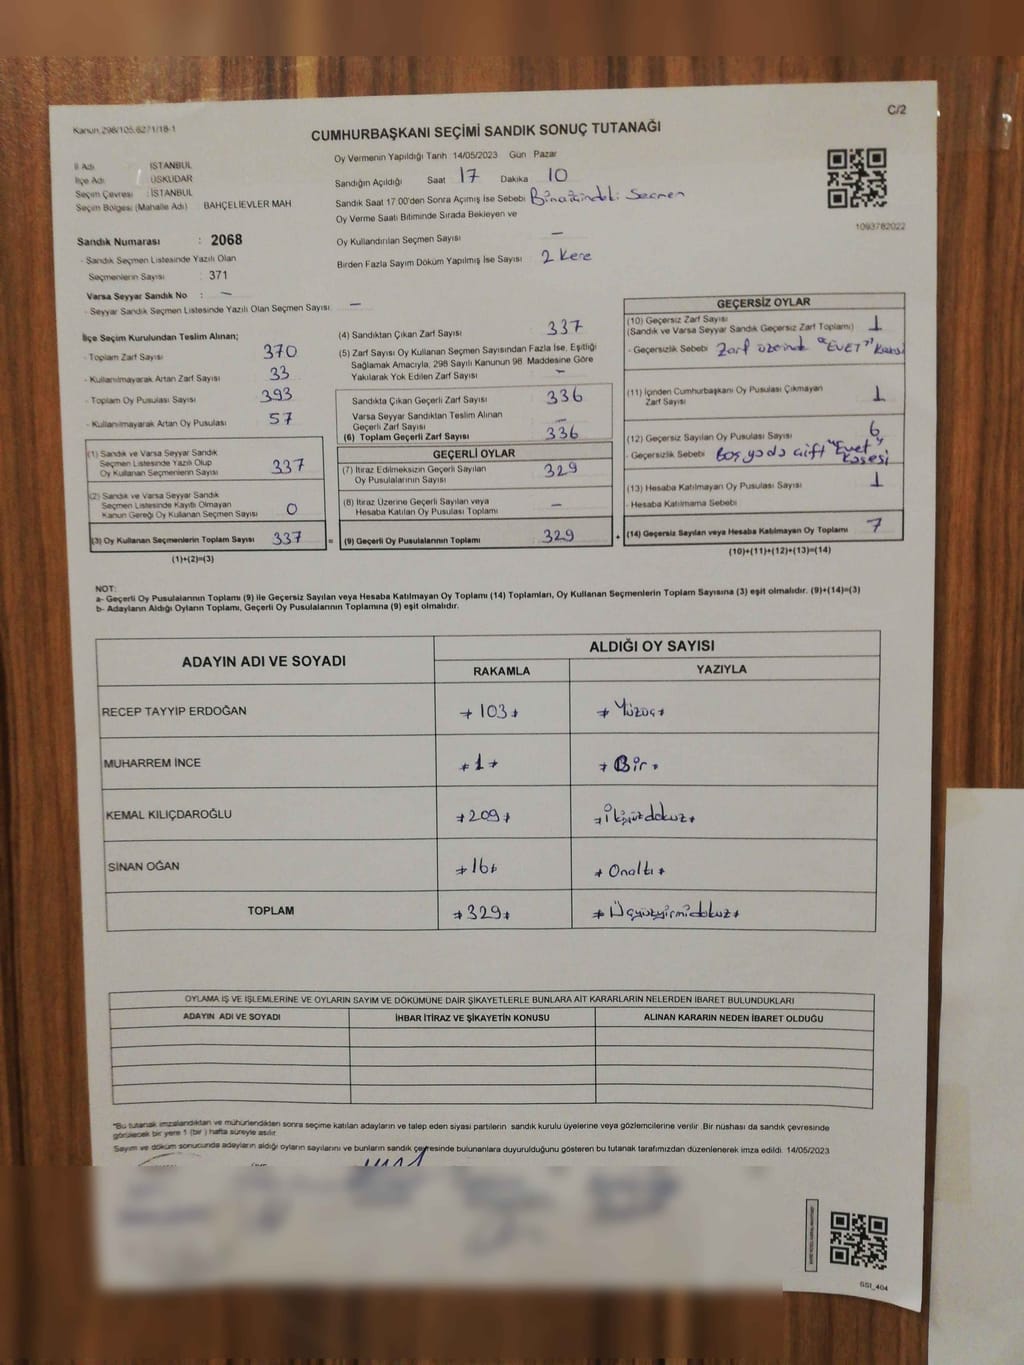 Kanun 298/105,6271/18-1
C/2
CUMHURBAŞKANI SEÇİMİ SANDIK SONUÇ TUTANAĞI
İl Adı : İSTANBUL
İlçe Adı : ÜSKÜDAR
Seçim Çevresi : İSTANBUL
Seçim Bölgesi (Mahalle Adı) BAHÇELİEVLER MAH
Sandık Numarası : 2068
- Sandık Seçmen Listesinde Yazılı Olan
Seçmenlerin Sayısı : 371
Varsa Seyyar Sandık No : –
- Seyyar Sandık Seçmen Listesinde Yazılı Olan Seçmen Sayısı –
Oy Vermenin Yapıldığı Tarih 14/05/2023 Gün Pazar
Sandığın Açıldığı Saat 17 Dakika 10
Sandık Saat 17 00'den Sonra Açımış İse Sebebi Bina içindeki Seçmen
Oy Verme Saati Bitiminde Sırada Bekleyen ve
Oy Kullandırılan Seçmen Sayısı –
Birden Fazla Sayım Döküm Yapılmış İse Sayısı 2 kere
1093782022
İlçe Seçim Kurulundan Teslim Alınan;
- Toplam Zarf Sayısı 370
- Kullanılmayarak Artan Zarf Sayısı 33
- Toplam Oy Pusulası Sayısı 393
- Kullanılmayarak Artan Oy Pusulası 57
(1) Sandık ve Varsa Seyyar Sandık
Seçmen Listesinde Yazılı Olup
Oy Kullanan Seçmenlerin Sayısı 337
(2) Sandık ve Varsa Seyyar Sandık
Seçmen Listesinde Kayıtlı Olmayan
Kanun Gereği Oy Kullanan Seçmen Sayısı 0
(3) Oy Kullanan Seçmenlerin Toplam Sayısı 337
(1)+(2)=(3)
(4) Sandıktan Çıkan Zarf Sayısı 337
(5) Zarf Sayısı Oy Kullanan Seçmen Sayısından Fazla İse, Eşitliği
Sağlamak Amacıyla, 298 Sayılı Kanunun 98. Maddesine Göre
Yakılarak Yok Edilen Zarf Sayısı –
Sandıkta Çıkan Geçerli Zarf Sayısı 336
Varsa Seyyar Sandıktan Teslim Alınan
Geçerli Zarf Sayısı –
(6) Toplam Geçerli Zarf Sayısı 336
GEÇERLİ OYLAR
(7) İtiraz Edilmeksizin Geçerli Sayılan
Oy Pusulalarının Sayısı 329
(8) İtiraz Üzerine Geçerli Sayılan veya
Hesaba Katılan Oy Pusulası Toplamı –
= (9) Geçerli Oy Pusulalarının Toplamı 329 +
GEÇERSİZ OYLAR
(10) Geçersiz Zarf Sayısı
(Sandık ve Varsa Seyyar Sandık Geçersiz Zarf Toplamı) 1
- Geçersizlik Sebebi Zarf üzerinde "EVET" kaşesi
(11) İçinden Cumhurbaşkanı Oy Pusulası Çıkmayan
Zarf Sayısı 1
(12) Geçersiz Sayılan Oy Pusulası Sayısı 6
- Geçersizlik Sebebi Boş yada çift "Evet" kaşesi
(13) Hesaba Katılmayan Oy Pusulası Sayısı 1
- Hesaba Katılmama Sebebi
(14) Geçersiz Sayılan veya Hesaba Katılmayan Oy Toplamı 7
(10)+(11)+(12)+(13)=(14)
NOT:
a- Geçerli Oy Pusulalarının Toplamı (9) ile Geçersiz Sayılan veya Hesaba Katılmayan Oy Toplamı (14) Toplamları, Oy Kullanan Seçmenlerin Toplam Sayısına (3) eşit olmalıdır. (9)+(14)=(3)
b- Adayların Aldığı Oyların Toplamı, Geçerli Oy Pusulalarının Toplamına (9) eşit olmalıdır.
ADAYIN ADI VE SOYADI
ALDIĞI OY SAYISI
RAKAMLA YAZIYLA
RECEP TAYYİP ERDOĞAN +103+ +Yüzüç+
MUHARREM İNCE +1+ +Bir+
KEMAL KILIÇDAROĞLU +209+ +ikiyüzdokuz+
SİNAN OĞAN +16+ +Onaltı+
TOPLAM +329+ +Üçyüzyirmidokuz+
OYLAMA İŞ VE İŞLEMLERİNE VE OYLARIN SAYIM VE DÖKÜMÜNE DAİR ŞİKAYETLERLE BUNLARA AİT KARARLARIN NELERDEN İBARET BULUNDUKLARI
ADAYIN ADI VE SOYADI İHBAR İTİRAZ VE ŞİKAYETİN KONUSU ALINAN KARARIN NEDEN İBARET OLDUĞU
*Bu tutanak imzalandıktan ve mühürlendikten sonra seçime katılan adayların ve talep eden siyasi partilerin sandık kurulu üyelerine veya gözlemcilerine verilir. Bir nüshası da sandık çevresinde
görülecek bir yere 1 (bir ) hafta süreyle asılır.
Sayım ve döküm sonucunda adayların aldığı oyların sayılarını ve bunların sandık çevresinde bulunanlara duyurulduğunu gösteren bu tutanak tarafımızdan düzenlenerek imza edildi. 14/05/2023
GSI_404